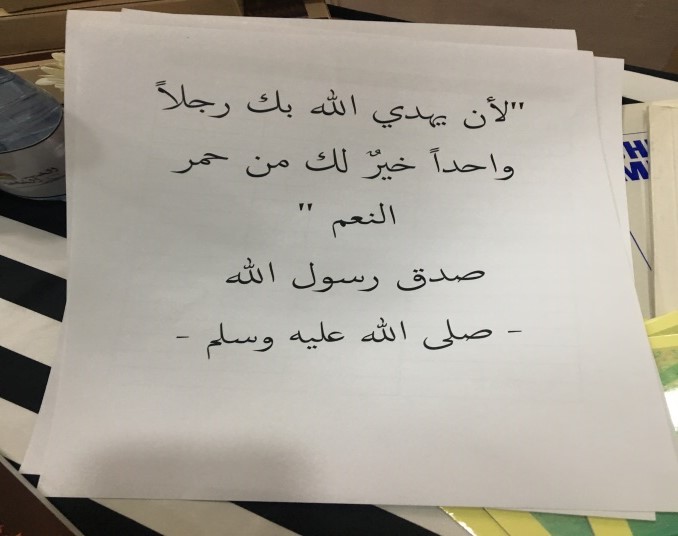 "لأن يهدي الله بك رجلاً
واحداً خيرٌ لك من حمر
النعم "
صدق رسول الله
- صلى الله عليه وسلم -